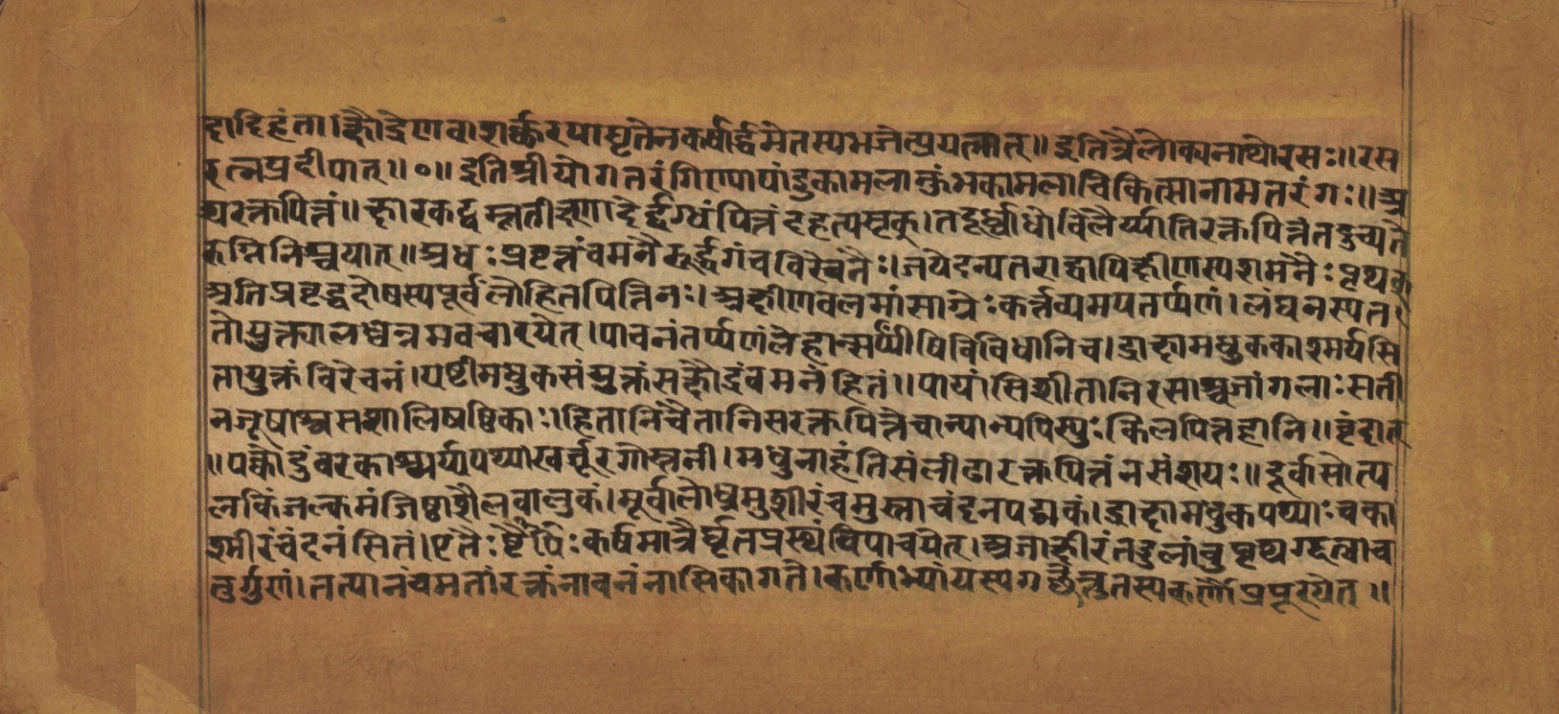 दादिहंता।क्षौद्रेणवाशर्क्करयाघृतेनकर्षार्द्धमेतस्यभजेत्प्रयत्नात्॥इतित्रैलोक्यनाथोरसः॥रस
रत्नप्रदीपात्॥०॥इतिश्रीयोगतरंगिण्यापांडुकामलाकुंभकामलाचिकित्सानामतरंगः॥अ
थरक्तपित्तं॥क्षारकट्वम्लतीक्ष्णादेर्द्दग्धंपित्तंदहत्यसृक्।तदूर्ध्वाधोविलैर्य्यातिरक्तपित्तंतदुच्यते
अधःप्रवृत्तंवमनैरूर्द्धगंचविरेचनैः।जयेदन्यतराद्वापिक्षीणस्यशमनैःपृथक्
अतिप्रवृद्धदोषस्यपूर्वलोहितपित्तिनः।अक्षीणवलमांसाग्नेःकर्त्तव्यमपतर्प्पणं।लंघनस्यत
तोयुक्त्यालध्वन्नमवचारयेत्।पाचनंतर्प्पणंलेहान्सर्प्पींषिविविधानिच।द्राक्षामधुककाश्मर्यसि
तायुक्तंविरेचनं।यष्टीमधुकसंयुक्तंसक्षौद्रंवमनंहितं॥पायांसिशीतानिरसाश्चजांगलाःसती
नजूषाश्चमशालिषष्ठिकाः।हितानिचैतानिसरक्तपित्तेचान्यान्यपिस्युःकिलपित्तहानि॥वृंदात्
॥पक्वोदुंवरकाश्मर्य्यपथ्याखर्जूरगोस्तनी।मधुनाहंतिसंलीढारक्तपित्तंनसंशयः॥दूर्वासोत्प
लकिंजल्कमंजिष्ठाशैलवालुकं।मूर्वालोध्रमुशीरंचमुस्ताचंदनपद्मकं।द्राक्षामधुकपथ्याःचका
श्मीरंचंदनंसितं।एतैःकर्षमात्रैर्घृतप्रस्थंविपाचयेत्।अजाक्षीरंतडुलांवु
तुर्गुणं।तत्पानंवमतांरक्तंनावनंनासिकागते।कर्णाभ्यांयस्यगच्छेत्तुतस्यकर्णौप्रपूरयेत्॥